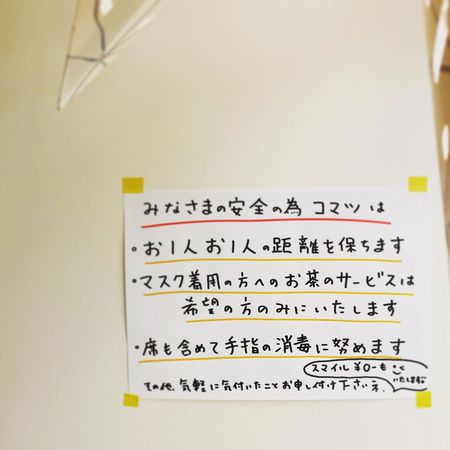 みなさまの安全の為 コマツは
・お1人お1人の距離を保ちます
・マスク着用の方へのお茶のサービスは
希望の方のみにいたします
・席も含めて手指の消毒に努めます
スマイル¥0-も
いたします
その他、気軽に気付いたことお申し付け下さいネ.